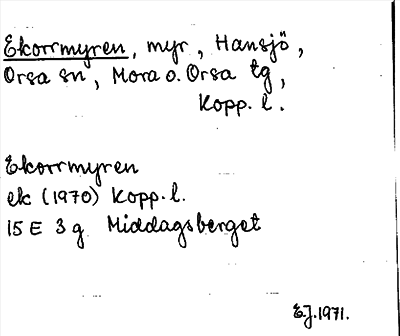 Ekorrmyren, myr, Hansjö,
Orsa sn, Mora o. Orsa tg,
Kopp. l.
Ekorrmyren
ek (1970) Kopp. l.
15 E 3 g Middagsberget
E.J. 1971.